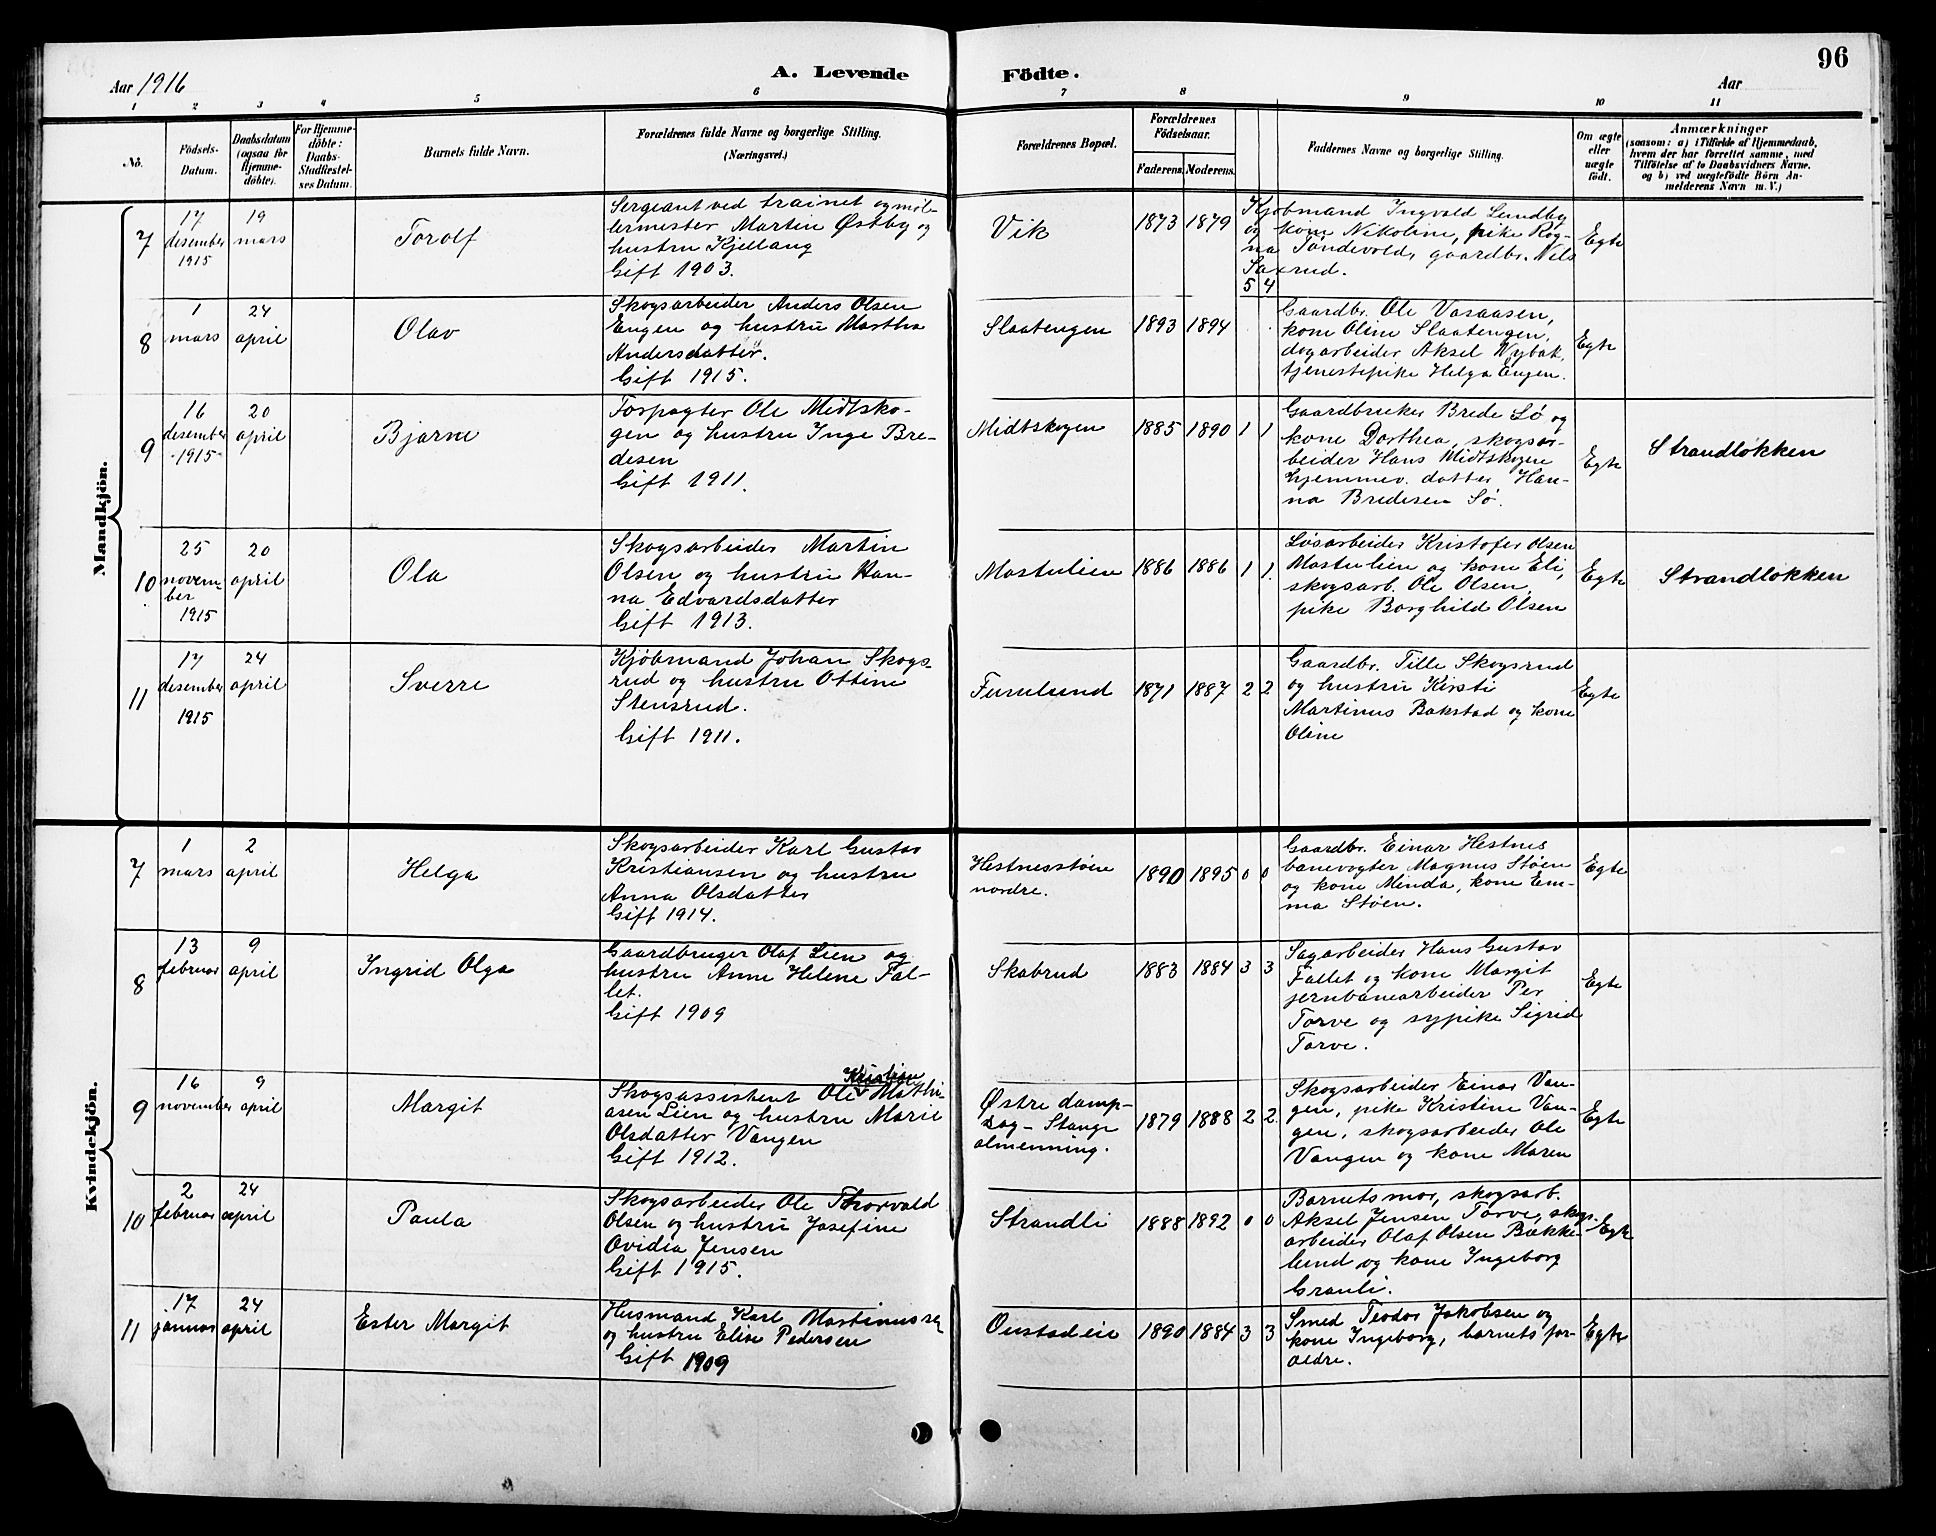 96
Aar 1916
A. Levende Födte.
Aar
1 2 3 4 5 6 7 8 9 10 11
No.
Födsels-Datum.
Daabsdatum (ogsaa for Hjemme-döbte).
For Hjemme-döbte: Daabs-Stadfæstel-ses Datum.
Barnets fulde Navn.
Forældrenes fulde Navne og borgerlige Stilling.
(Næringsvei.)
Forældrenes Bopæl.
Forældrenes Födselsaar.
Faderens. Moderens.
Faddernes Navne og borgerlige Stilling.
Om ægte eller uægte födt.
Anmærkninger
(saasom: a) i Tilfælde af Hjemmedaab,
hvem der har forrettet samme, med
Tilföielse af to Daabsvidners Navne.
og b) ved uægtefödte Börn An-
melderens Navn m. V.)
Mandkjön.
7
17 desember 1915
19 mars
Torolf
Sergeant ved trainet og møl-
lermester Martin Østby og
hustru Kjellaug
Gift 1903.
Vik
1873 1879
5 4
Kjøbmand Ingvald Lundby
og kone Nikoline, pike Rag-
na Tøndevold, gaardbr. Nils
Saxrud.
Egte
8
1 mars
24 april
Olav
Skogsarbeider Anders Olsen
Engen og hustru Martha
Andersdatter.
Gift 1915.
Slaatengen
1893 1894
Gaardbr. Ole Vasaasen,
kone Oline Slaatengen,
dagarbeider Aksel Nybak,
tjenestepike Helga Engen.
Egte
9
16 desember 1915
20 april
Bjarne
Forpagter Ole Midtsko-
gen og hustru Inge Bre-
desen
Gift 1911.
Midtskogen
1885 1890 1 1
Gaardbruker Brede Sø og
kone Dorthea, skogsar-
beider Hans Midtskogen
hjemmev. datter Han-
na Bredesen Sø.
Egte
Strandløkken
10
25 november 1915
20 april
Ola
Skogsarbeider Martin
Olsen og hustru Han-
na Edvardsdatter
Gift 1913.
Mastulien
1886 1886 1 1
Løsarbeider Kristofer Olsen
Mastulien og kone Eli,
skogsarb. Ole Olsen,
pike Borghild Olsen
Egte
Strandløkken
11
17 desember 1915
24 april
Sverre
Kjøbmand Johan Skogs-
rud og hustru Ottine
Stensrud.
Gift 1911.
Furulund
1871 1887 2 2
Gaardbr. Tille Skogsrud
og hustru Kirsti
Martinus Bakstad og kone
Oline
Egte
Kvindekjön.
7
1 mars
2 april
Helga
Skogsarbeider Karl Gustav
Kristiansen og hustru
Anna Olsdatter
Gift 1914.
Hestnesstøen
nordre.
1890 1895 0 0
Gaardbr. Einar Hestnes
banevogter Magnus Støen
og kone Minda, kone Em-
ma Støen.
Egte
8
13 februar
9 april
Ingrid Olga
Gaardbruger Olaf Lien og
hustru Anne Helene Fal-
let.
Gift 1909
Skabrud
1883 1884 3 3
Sagarbeider Hans Gustav
Fallet og kone Margit
jernbanearbeider Per
Torve og sypike Sigrid
Torve.
Egte
9
16 november
9 april
Margit
Kristian
Skogsassistent Ole Mathi-
asen Lien og hustru Marie
Olsdatter Vangen
Gift 1912.
Østre damp-
sag - Stange
almenning.
1879 1888 2 2
Skogsarbeider Einar Van-
gen, pike Kristine Van-
gen, skogsarbeider Ole
Vangen og kone Maren
Egte
10
2 februar
24 april
Paula
Skogsarbeider Ole Thorvald
Olsen og hustru Josefine
Ovidia Jensen
Gift 1915.
Strandli
1888 1892 0 0
Barnets mor, skogsarb.
Aksel Jensen Torve, skogs-
arbeider Olaf Olsen Bække-
lund og kone Ingeborg
Granli.
Egte
11
17 januar
24 april
Ester Margit
Husmand Karl Martinussen
og hustru Elise Pedersen
Gift 1909
Oustadeie
1890 1884 3 3
Smed Teodor Jakobsen og
kone Ingeborg, barnets for-
ældre.
Egte